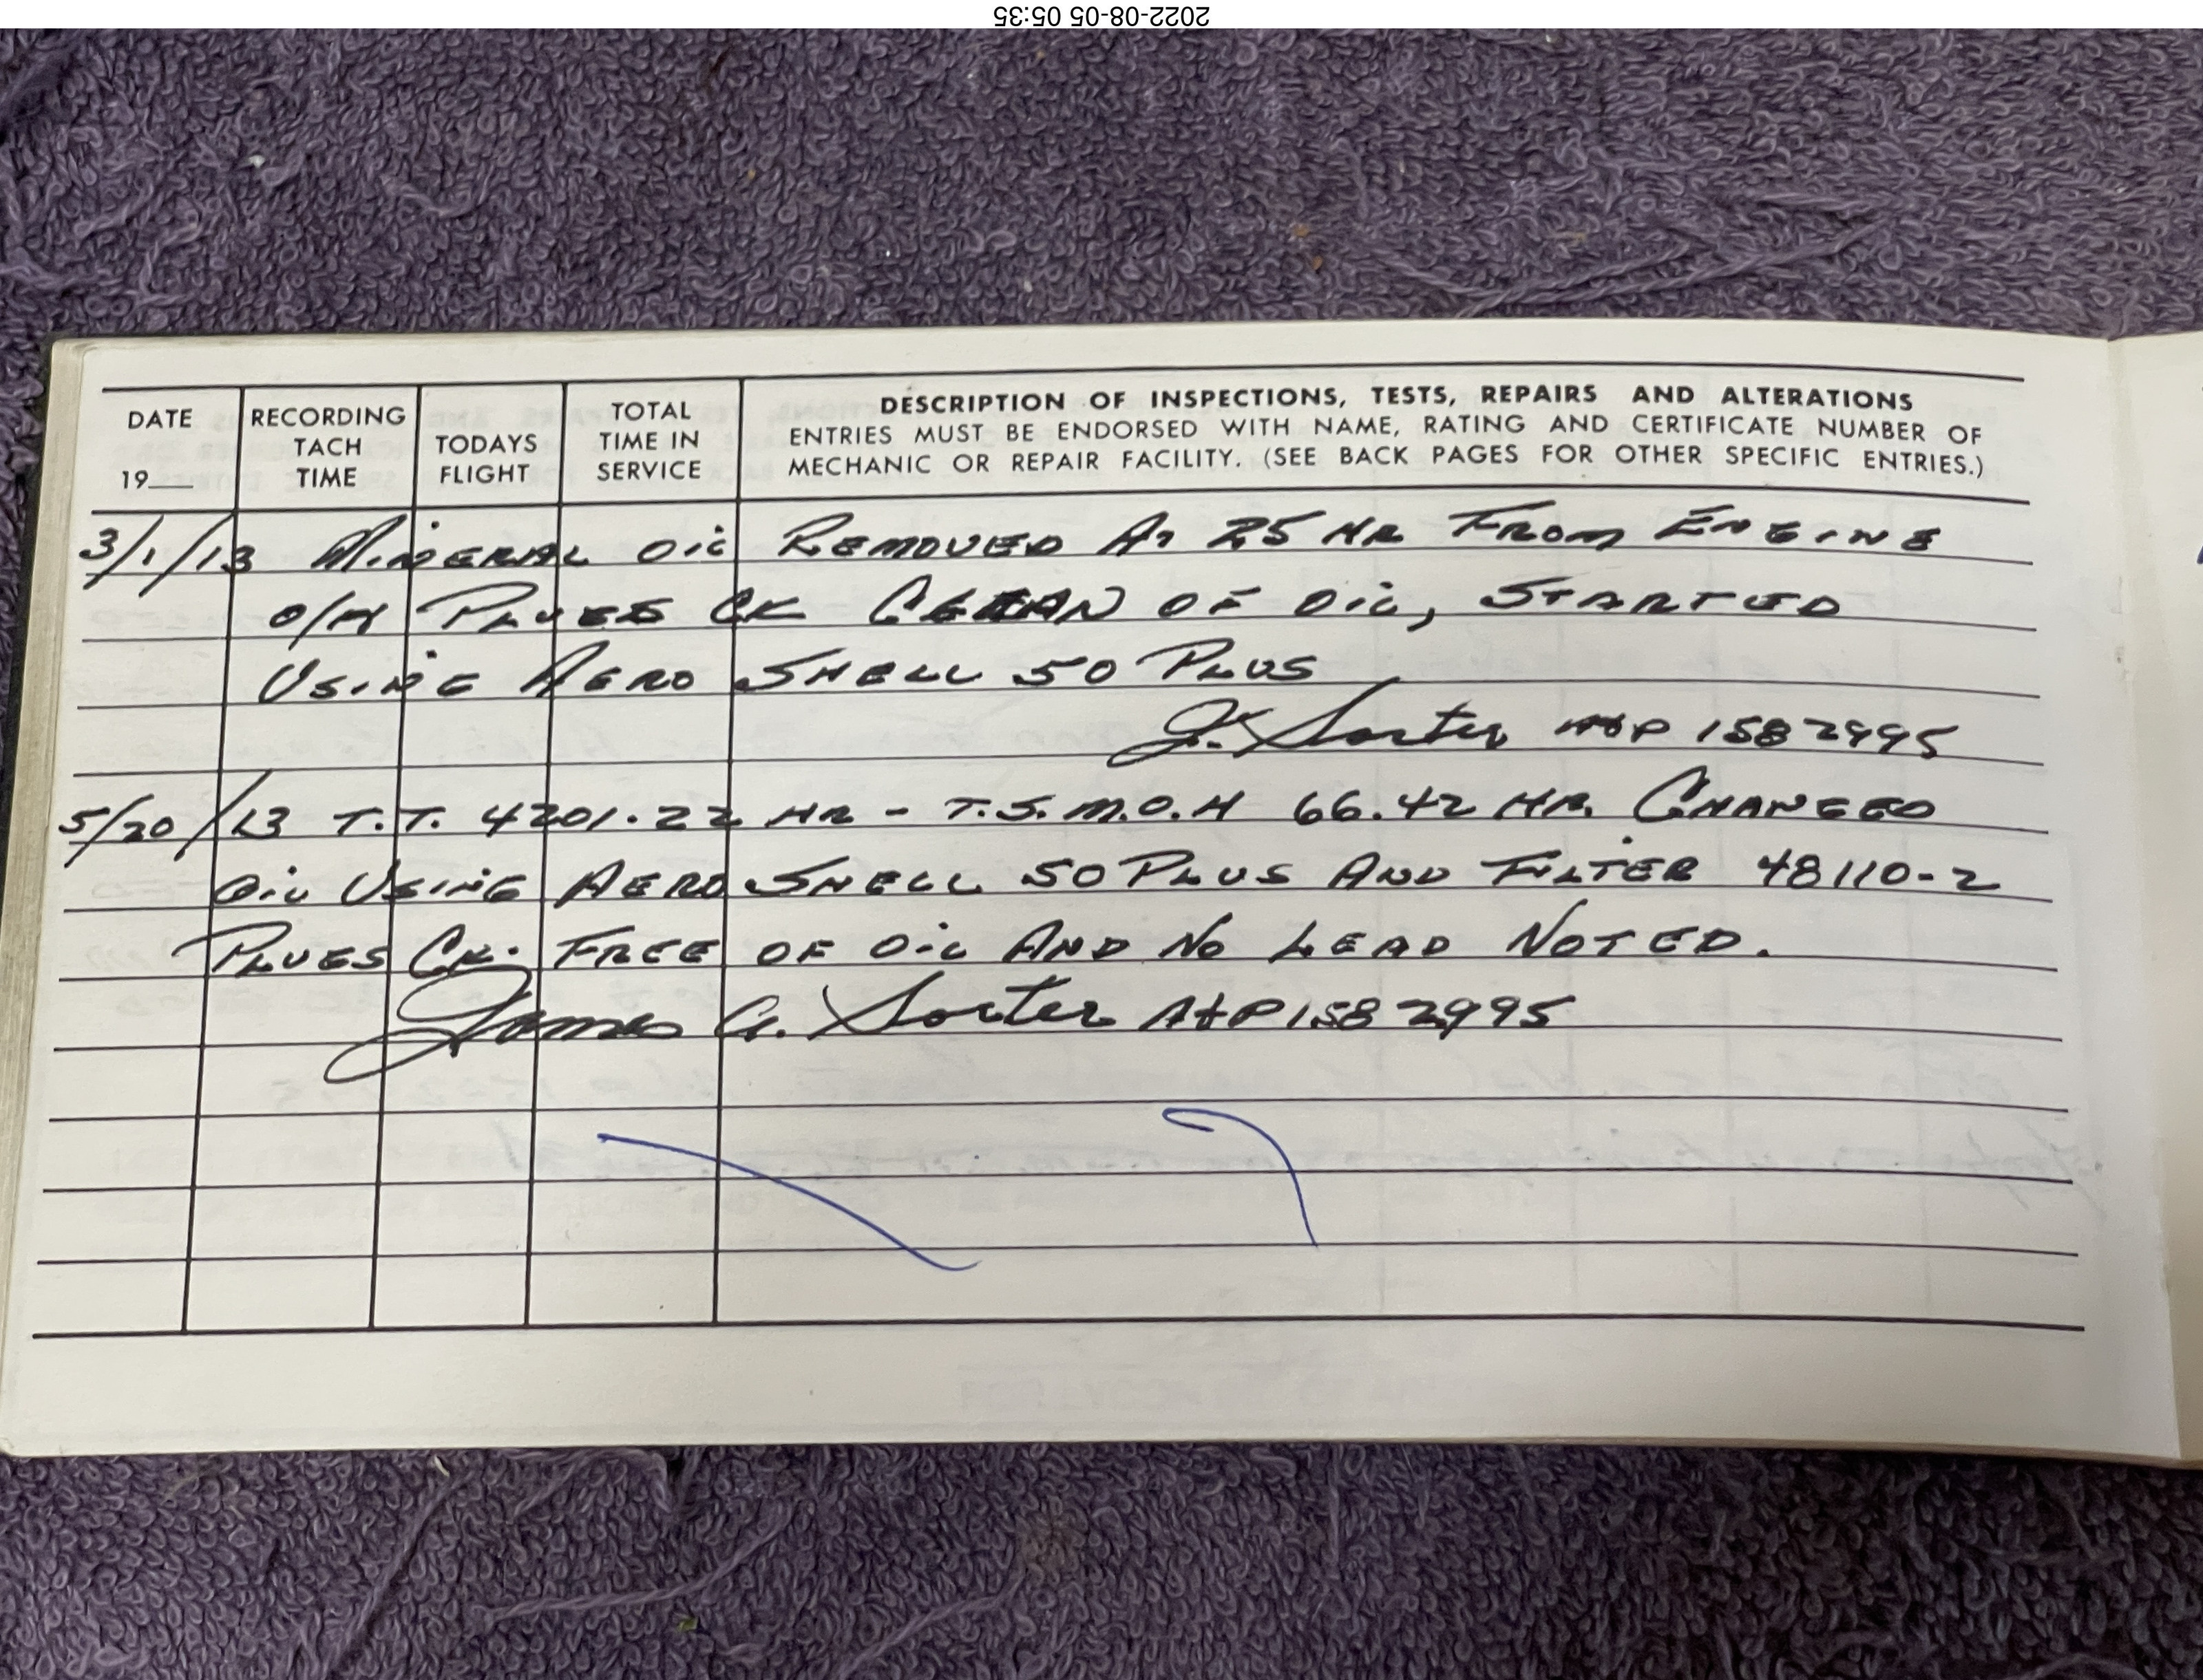 2022-08-05 05:35
DATE
19___
RECORDING
TACH
TIME
TODAYS
FLIGHT
TOTAL
TIME IN
SERVICE
DESCRIPTION OF INSPECTIONS, TESTS, REPAIRS AND ALTERATIONS
ENTRIES MUST BE ENDORSED WITH NAME, RATING AND CERTIFICATE NUMBER OF
MECHANIC OR REPAIR FACILITY. (SEE BACK PAGES FOR OTHER SPECIFIC ENTRIES.)
3/1/13 MINERAL OIL REMOVED AT 25 HR FROM ENGINE
O/H PLUGS CK CLEAN OF OIL, STARTED
USING AERO SHELL 50 PLUS
J. Sorter A&P 1582995
5/20/13 T.T. 4201.22 HR - T.S.M.O.H 66.42 HR. CHANGED
OIL USING AERO SHELL 50 PLUS AND FILTER 48110-2
PLUGS CK. FREE OF OIL AND NO LEAD NOTED.
James G. Sorter A&P 1582995